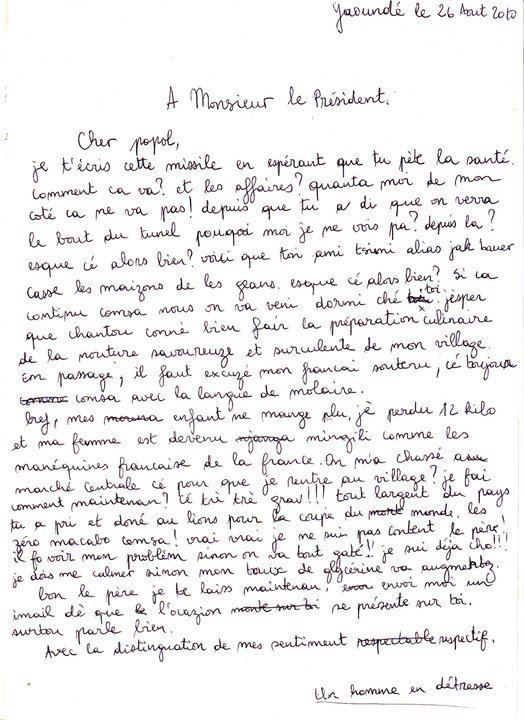 Yaoundé le 26 Aout 2010
A Monsieur le Président.
Cher popol,
je t'écris cette missile en espérant que tu pèt la santé.
comment ca va? et les affaires? quanta moi de mon
coté ca ne va pas! depuis que tu a di que on verra
le bout du tunel pouqoi moi je ne vois pa? depui la?
esque cé alors bien? voici que ton ami tsimi alias jak bauer
casse les maizons de les geans. esque cé alors bien? Si ca
continu comsa nous on va veni dormi ché toi. jesper
que chantou conné bien fair la préparation culinaire
de la nouture savoureuze et surculente de mon village.
Em passage, il faut excuzé mon francai soutenu, cé toujoura
comsa avec la langue de molaire.
bref, mes enfant ne mange plu, jè perdu 12 kilo
et ma femme est devenu mingili comme les
manéquines francaise de la france. On m'a chassé au
marché centrale cé pour que je rentre au village? je fai
comment maintenan? té trè trè grav!!! tout largent du pays
tu a pri et doné au lions pour la coupe du monde. les
zéro macabo comsa! vrai vrai je ne suis pas content le père!
il fo voir mon problém sinon on va tout gaté!! je sui déja cho!!!
je dois me calmer sinon mon taux de glycérine va augmenté.
bon le père je te laiss maintenan, envoi moi uni
imail dè que l'ocazion se présente sur toi.
surtou parle bien.
Avec la distinguation de mes sentiment respectable respectif.
Un homme en détresse